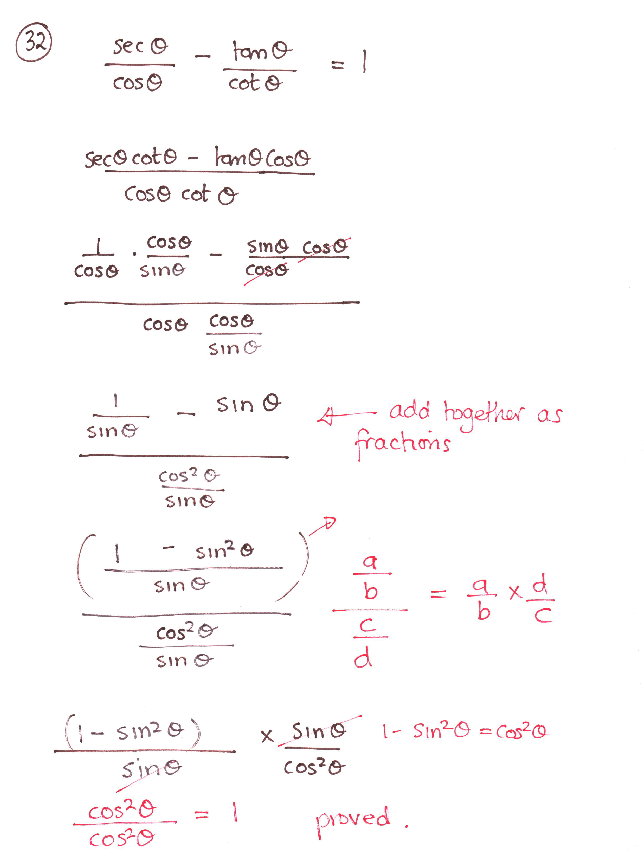 32 secθ/cosθ - tanθ/cotθ = 1
(secθ cotθ - tanθ cosθ)/(cosθ cotθ)
(1/cosθ · cosθ/sinθ - sinθ cosθ/cosθ)/(cosθ cosθ/sinθ)
(1/sinθ - sinθ)/(cos²θ/sinθ) ← add together as
fractions
((1 - sin²θ)/sinθ)/(cos²θ/sinθ) (a/b)/(c/d) = a/b × d/c
(1 - sin²θ)/sinθ × sinθ/cos²θ 1 - sin²θ = cos²θ
cos²θ/cos²θ = 1 proved.